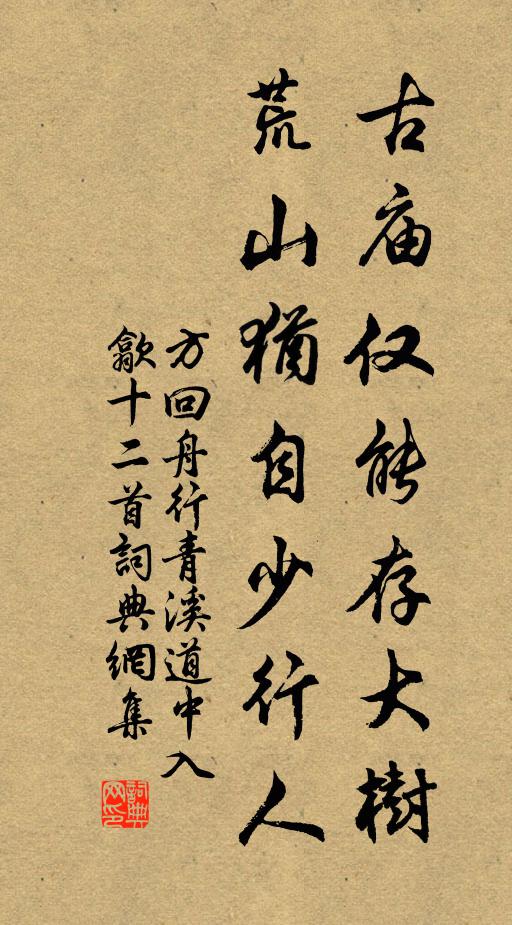 古庙仅能存大樹
荒山猶自少行人
方回舟行青溪道中入
歙十二首詞典網集
詞典网印